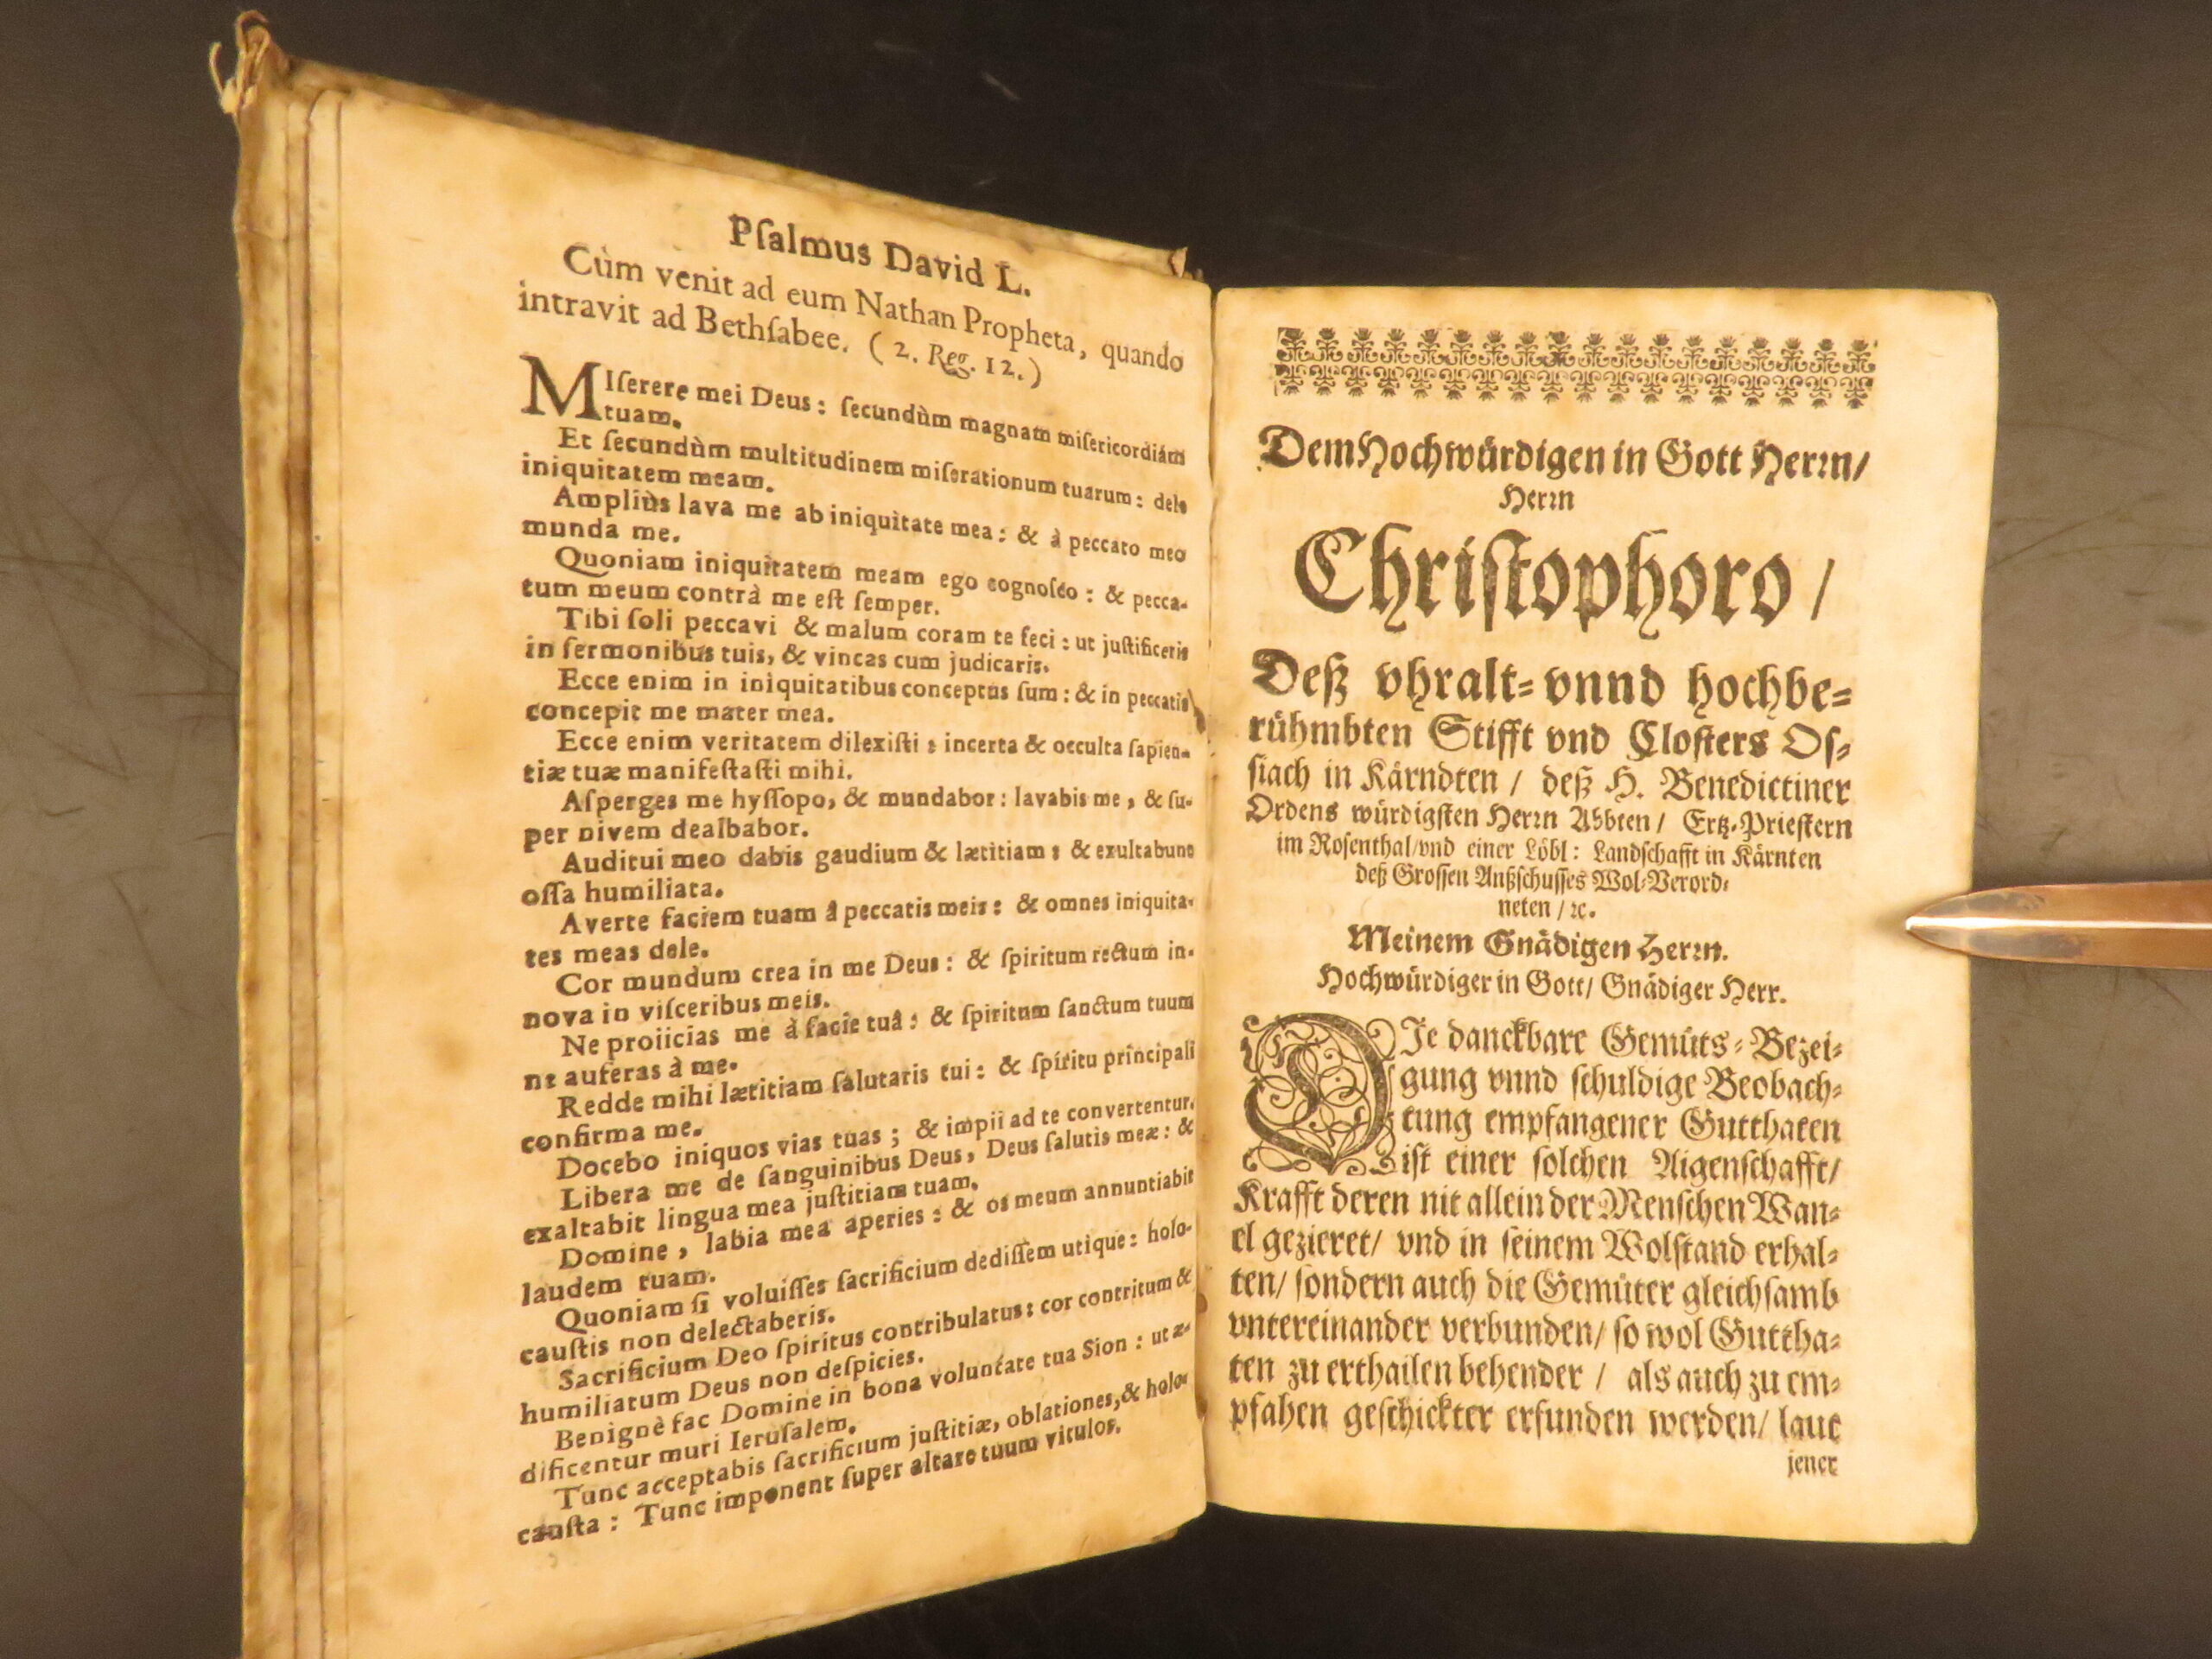 Pſalmus David L.
Cùm venit ad eum Nathan Propheta, quando
intravit ad Bethſabee. (2. Reg. 12.)
MIſerere mei Deus: ſecundùm magnam miſericordiám
tuam.
Et ſecundùm multitudinem miſerationum tuarum: dele
iniquitatem meam.
Ampliùs lava me ab iniquitate mea: & à peccato meo
munda me.
Quoniam iniquitatem meam ego cognoſco: & pecca-
tum meum contrà me eſt ſemper.
Tibi ſoli peccavi & malum coram te feci: ut juſtificeris
in ſermonibus tuis, & vincas cum judicaris.
Ecce enim in iniquitatibus conceptus ſum: & in peccatis
concepit me mater mea.
Ecce enim veritatem dilexiſti: incerta & occulta ſapien-
tiæ tuæ manifeſtaſti mihi.
Aſperges me hyſſopo, & mundabor: lavabis me, & ſu-
per nivem dealbabor.
Auditui meo dabis gaudium & lætitiam: & exultabunt
oſſa humiliata.
Averte faciem tuam â peccatis meis: & omnes iniquita-
tes meas dele.
Cor mundum crea in me Deus: & ſpiritum rectum in-
nova in viſceribus meis.
Ne proiicias me à facie tuâ: & ſpiritum ſanctum tuum
ne auferas à me.
Redde mihi lætitiam ſalutaris tui: & ſpiritu principali
confirma me.
Docebo iniquos vias tuas; & impii ad te convertentur.
Libera me de ſanguinibus Deus, Deus ſalutis meæ: &
exaltabit lingua mea juſtitiam tuam.
Domine, labia mea aperies: & os meum annuntiabit
laudem tuam.
Quoniam ſi voluiſſes ſacrificium dediſſem utique: holo-
cauſtis non delectaberis.
Sacrificium Deo ſpiritus contribulatus: cor contritum &
humiliatum Deus non deſpicies.
Benignè fac Domine in bona voluntate tua Sion: ut æ-
dificentur muri Ieruſalem.
Tunc acceptabis ſacrificium juſtitiæ, oblationes, & holo-
cauſta: Tunc imponent ſuper altare tuum vitulos.
Dem Hochwürdigen in Gott Herꝛn/
Herꝛn
Chriſtophoro/
Deß vhralt- vnnd hochbe-
rühmbten Stifft vnd Cloſters Oſ-
ſiach in Kärndten / deß H. Benedictiner
Ordens würdigſten Herꝛn Abbten / Ertz-Prieſtern
im Roſenthal/vnd einer Löbl: Landſchafft in Kärnten
deß Groſſen Außſchuſſes Wol-Verord-
neten / ꝛc.
Meinem Gnädigen Herꝛn.
Hochwürdiger in Gott/ Gnädiger Herr.
DIe danckbare Gemüts-Bezei-
gung vnnd ſchuldige Beobach-
tung empfangener Gutthaten
iſt einer ſolchen Aigenſchafft/
Krafft deren nit allein der Menſchen Wan-
el gezieret/ vnd in ſeinem Wolſtand erhal-
ten/ ſondern auch die Gemüter gleichſamb
vntereinander verbunden/ ſo wol Guttha-
ten zu erthailen behender / als auch zu em-
pfahen geſchickter erfunden werden/ laut
jener